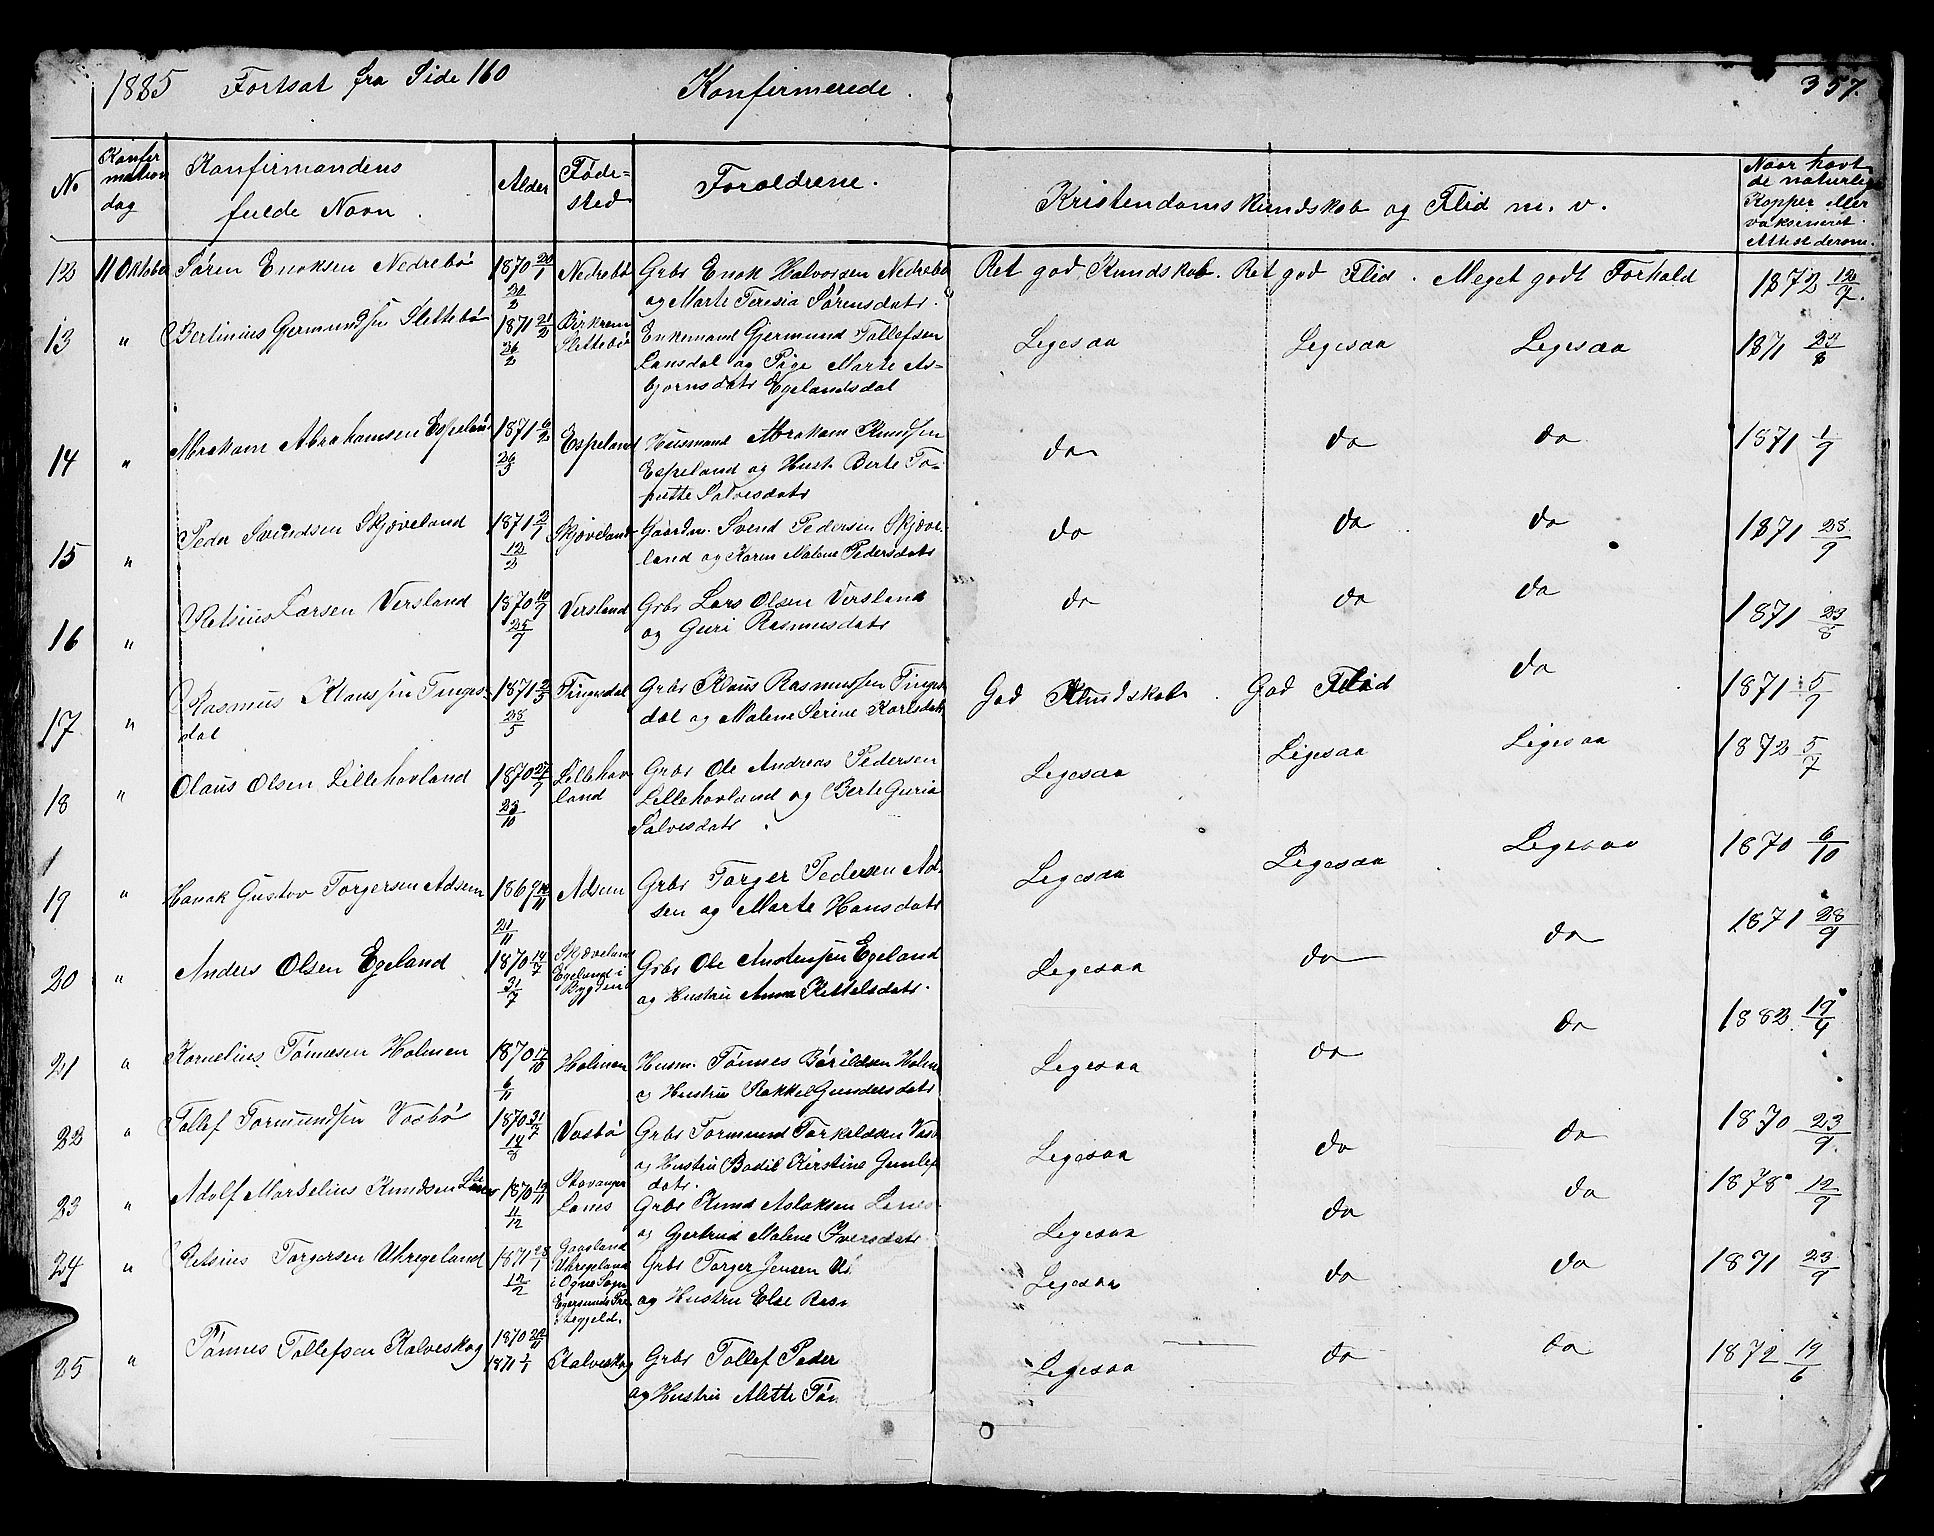 1885 Fortsat fra Side 160 Konfirmerede. 357.
No Konfirmation dag Konfirmandens fulde Navn. Alder Fødested Foroldrene. Kristendomskundskab og Flid m. v. Naar havt de naturlige Kopper eller vaksineret Attest derom.
12 11 Oktober Søren Enoksen Nedrebø 1870 20/1 Nedrebø Grbr Enok Halvorsen Nedrebø Ret god Kundskab. Ret god Flid. Meget godt Forhold 1872 12/7.
og Marte Teresia Sørensdatr.
13 " Bertinius Gjermundsen Slettebø 1871 21/2 Birkrem Enkemand Gjermund Tollefsen Ligesaa Ligesaa Ligesaa 1871 23/8
26/2 Slettebø Lansdal og Pige Marte As-
bjørnsdatr Egelandsdal
14 " Abraham Abrahamsen Espeland 1871 6/2 Espeland Husmand Abraham Knudsen do do do 1871 1/9
26/3 Espeland og Hust. Berte To-
nette Salvesdatr
15 " Peder Svendsen Skjæveland 1871 2/1 Skjæveland Gaardm. Svend Pedersen Skjæve- do do do 1871 28/9
12/2 land og Karen Malene Pedersdatr
16 " Retsius Larsen Versland 1870 10/7 Versland Grbr Lars Olsen Versland do do do 1871 23/8
25/7 og Guri Rasmusdatr
17 " Rasmus Klaussen Tinges- 1871 2/3 Tingesdal Grbr Klaus Rasmussen Tinges God Kundskab. God Flid do 1871 5/7
dal 28/5 dal og Malene Serine Karlsdatr
18 " Olaus Olsen Lillehovland 1870 27/9 Lillehov Grbr Ole Andreas Pedersen Ligesaa Ligesaa Ligesaa 1872 5/7
23/10 land Lillehovland og Berte Guria
Salvesdatr.
19 " Hanak Gustav Torgersen Adsen 1869 14/11 Adsen Grbr Torger Pedersen Ad- Ligesaa Ligesaa Ligesaa 1870 6/10
21/11 sen og Marte Hansdatr
20 " Anders Olsen Egeland 1870 14/7 Skjæveland Grbr Ole Andersen Egeland Ligesaa do do 1871 28/9
31/7 Egeland i Bygden og Hustru Anna Kittelsdatr.
21 " Kornelius Tønnesen Holmen 1870 17/10 Holmen Husm. Tønnes Børildsen Holme Ligesaa do do 1882 19/4
6/11 og Hustru Rakkel Gundersdatr
22 " Tollef Tormundsen Vasbø 1870 31/7 Vasbø Grbr Tormund Torkildsen Vasb Ligesaa do do 1870 23/9.
14/8 og Hustru Bodil Kirstine Gunlef
datr.
23 " Adolf Marselius Knudsen 1870 19/11 Stavanger Grbr Knud Aslaksen Lanes Ligesaa do do 1878 12/9
11/12 Lanes og Gjertrud Malene Iversdatr.
24 " Retsius Torgersen Uhregeland 1871 28/1 Gaasland Grbr Torger Jensen U Ligesaa do do 1871 23/9
12/2 Uhregeland og Hustru Else Ras
i Ogne Sogn
Egersunds Præ
stegjeld.
25 " Tønnes Tollefsen Kalveskog 1870 22/11 Kalveskog Grbr Tollef Peder Ligesaa do do 1872 19/6
1871 1/1 og Hustru Alette Tøn